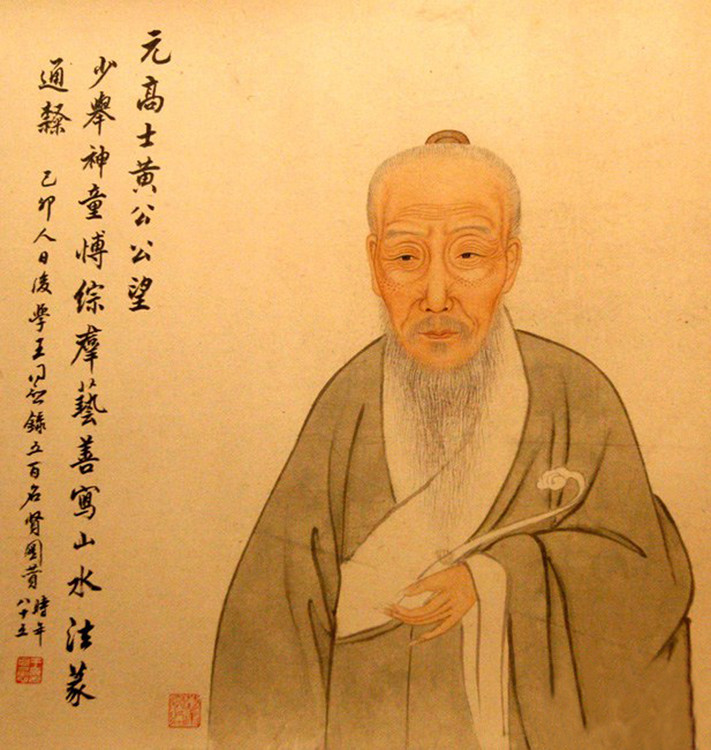 元高士黃公公望
少舉神童愽綜羣藝善寫山水法篆
通隸 己卯人日後學王同愈錄五百名賢圖贊時年八十五